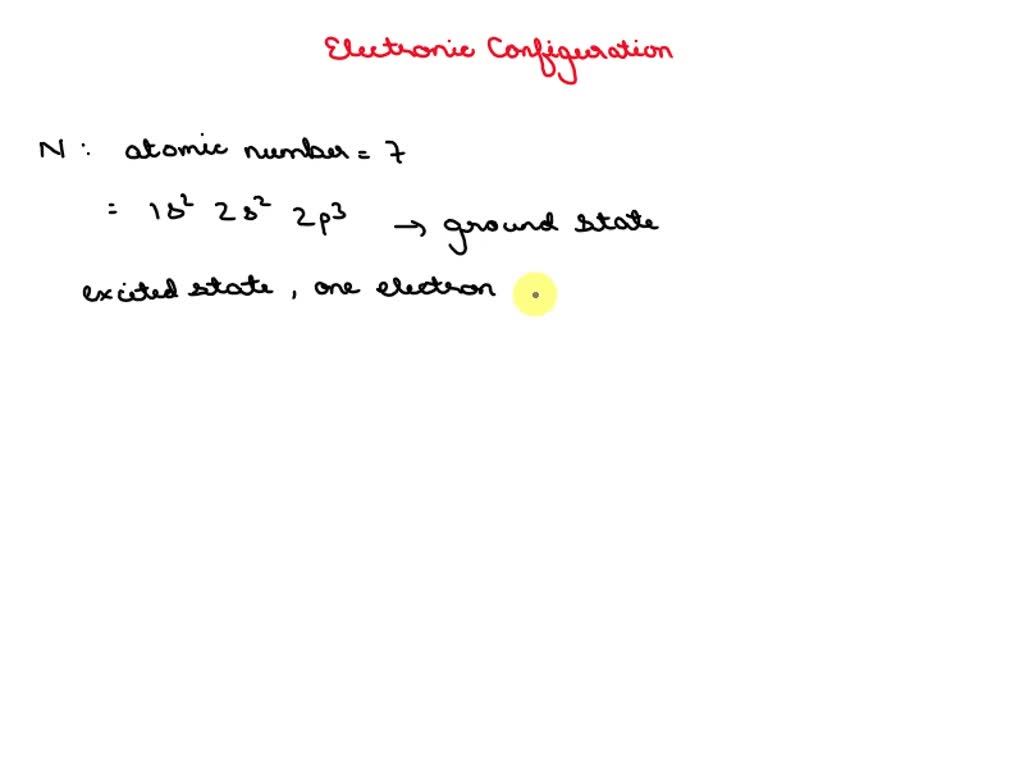 Electronic Configuration
N: atomic number = 7
= 1s² 2s² 2p³ → ground state
excited state, one electron